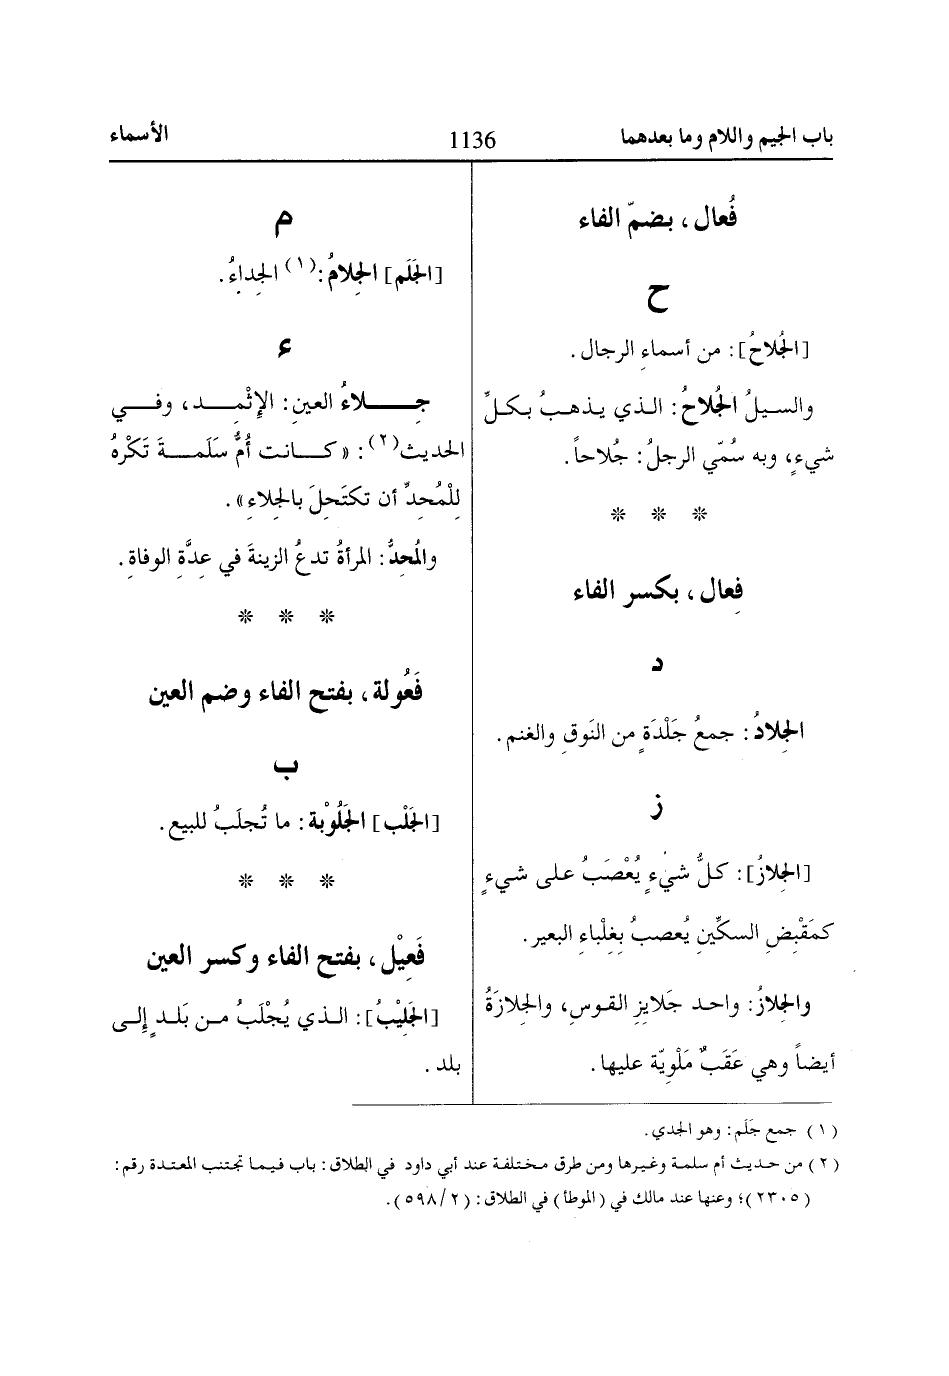 باب الجيم واللام وما بعدهما 1136 الأسماء
فُعال، بضمّ الفاء
ح
[الجُلاحُ]: من أسماءِ الرجال.
والسيلُ الجُلاحُ: الذي يذهبُ بكلِّ
شيءٍ، وبه سُمّي الرجلُ: جُلاحاً.
* * *
فِعال، بكسر الفاء
د
الجِلادُ: جمعُ جَلْدَةٍ من النَوقِ والغنم.
ز
[الجِلازُ]: كلُّ شيْءٍ يُعْصَبُ على شيءٍ
كمَقْبِضِ السكِّينِ يُعصبُ بِعِلْباءِ البعير.
والجِلازُ: واحد جَلايِزِ القوسِ، والجِلازَةُ
أيضاً وهي عَقَبٌ مَلْوِيّة عليها.
م
[الجَلَم] الجِلامُ:(١) الجِداءُ.
ء
جِـلاءُ العينِ: الإِثْمِد، وفي
الحديث(٢): «كانت أُمُّ سَلَمةَ تَكْرهُ
لِلْمُحِدِّ أن تكتَحِلَ بالجِلاءِ».
والمُحِدُّ: المرأةُ تدعُ الزينةَ في عِدَّةِ الوفاةِ.
* * *
فَعُولة، بفتح الفاء وضم العين
ب
[الجَلْب] الجَلُوْبة: ما تُجلَبُ للبيع.
* * *
فَعِيْل، بفتح الفاء وكسر العين
[الجَلِيْبُ]: الذي يُجْلَبُ من بَلدٍ إِلى
بلد.
(١) جمع جَلَم: وهو الجدي.
(٢) من حديث أم سلمة وغيرها ومن طرق مختلفة عند أبي داود في الطلاق: باب فيما تجتنب المعتدة رقم:
(٢٣٠٥)؛ وعنها عند مالك في (الموطأ) في الطلاق: (٢/٥٩٨).